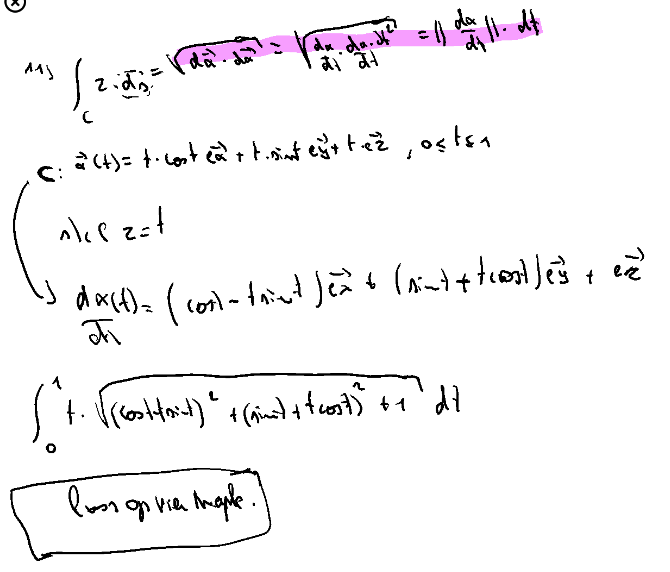 11) ∫_C z·ds = √(dα⃗·dα⃗) = √(dα/dt · dα/dt · dt²) = ||dα/dt||·dt
C: α⃗(t) = t·cost ex⃗ + t·sint ey⃗ + t·ez⃗ , 0≤t≤1
z=t
dα(t)/dt = (cost - tsint)ex⃗ + (sint + tcost)ey⃗ + ez⃗
∫_0^1 t·√((cost-tsint)² + (sint+tcost)² + 1) dt
Loss op via Maple.